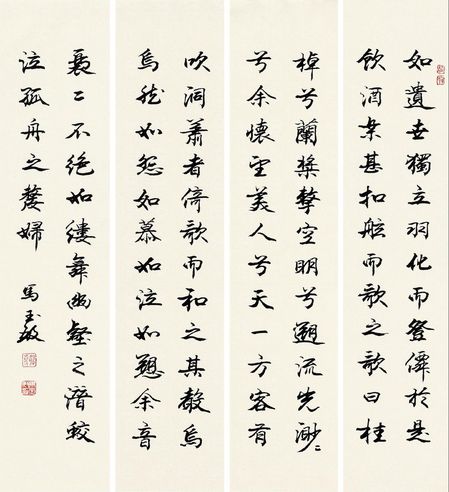 如遺世獨立羽化而登僊於是
飲酒樂甚扣舷而歌之歌曰桂
棹兮蘭槳擊空明兮遡流光渺〻
兮余懷望美人兮天一方客有
吹洞簫者倚歌而和之其聲烏
烏然如怨如慕如泣如愬余音
裊〻不絕如縷舞幽壑之潛蛟
泣孤舟之嫠婦 馬